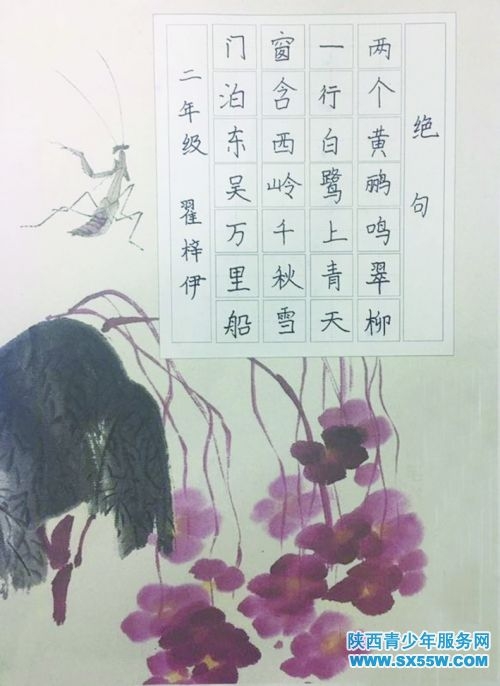 绝句
两个黄鹂鸣翠柳
一行白鹭上青天
窗含西岭千秋雪
门泊东吴万里船
二年级 翟梓伊
陕西青少年服务网
www.sx55w.com